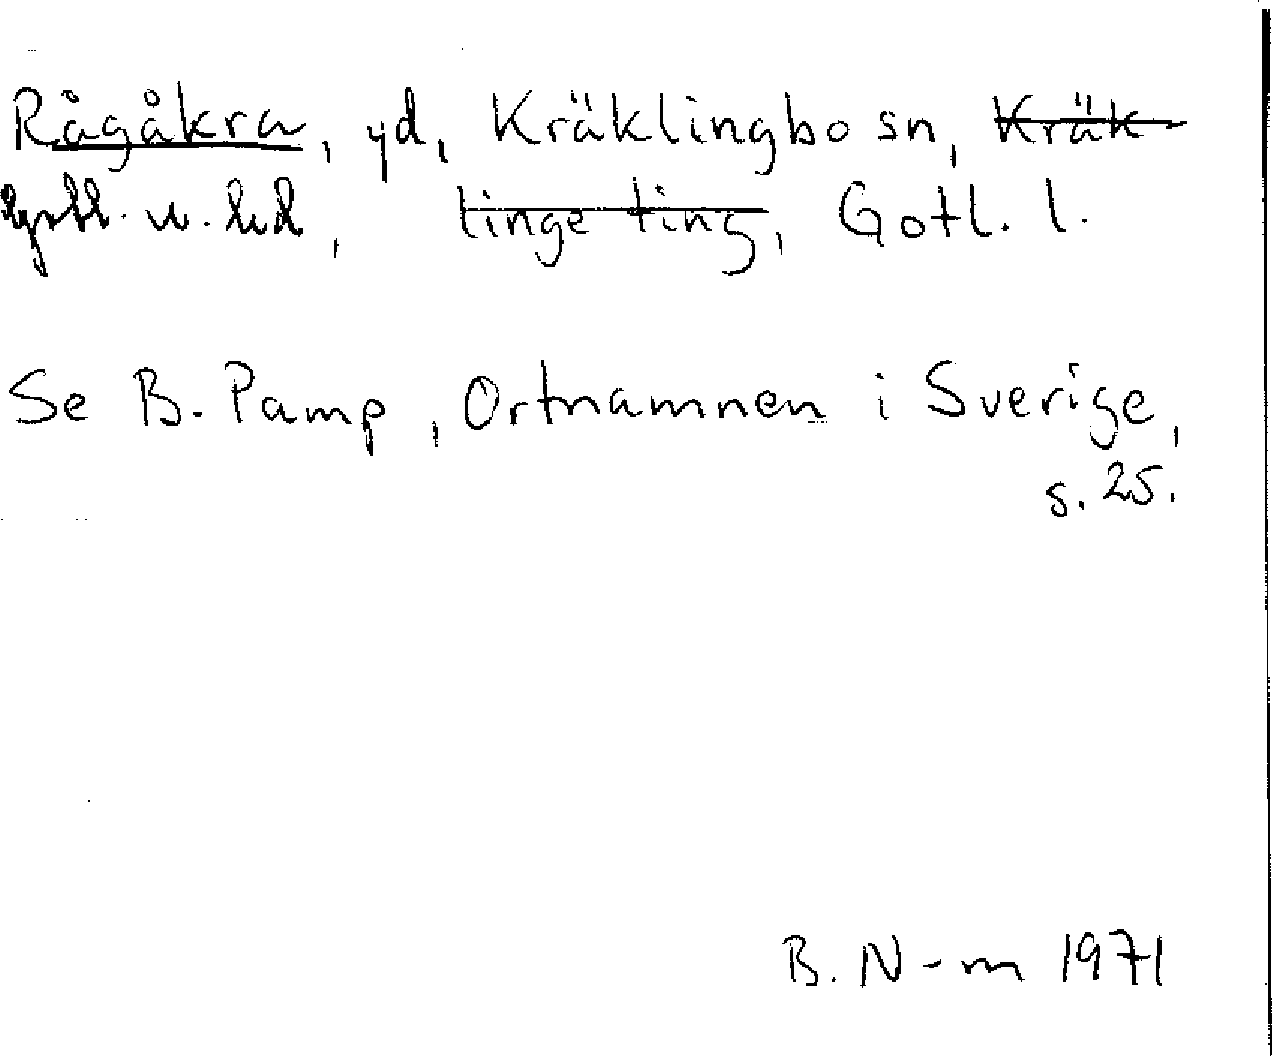 Rågåkra, yd, Kräklingbo sn, Kräk-
Gotl. n. hd, linge ting, Gotl. l.
Se B. Pamp, Ortnamnen i Sverige,
s. 25.
B. N-m 1971